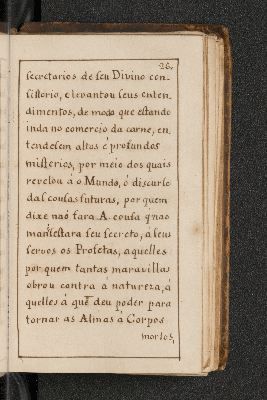 26.
secretarios de seu Divino con-
sistorio, e levantou seus enten-
dimentos, de modo que estando
inda no comercio da carne, en-
tendesem altos é profundos
misterios, por meio dos quais
revelou á o Mundo, ó discurso
das cousas futuras, por quem
dixe naõ fara A. cousa q̃ nao
manifestara seu secreto, á seus
servos os Profetas, aquelles
por quem tantas maravillas
obrou contra á natureza, á
quelles á quẽ deu poder para
tornar as Almas á Corpos
mortos,